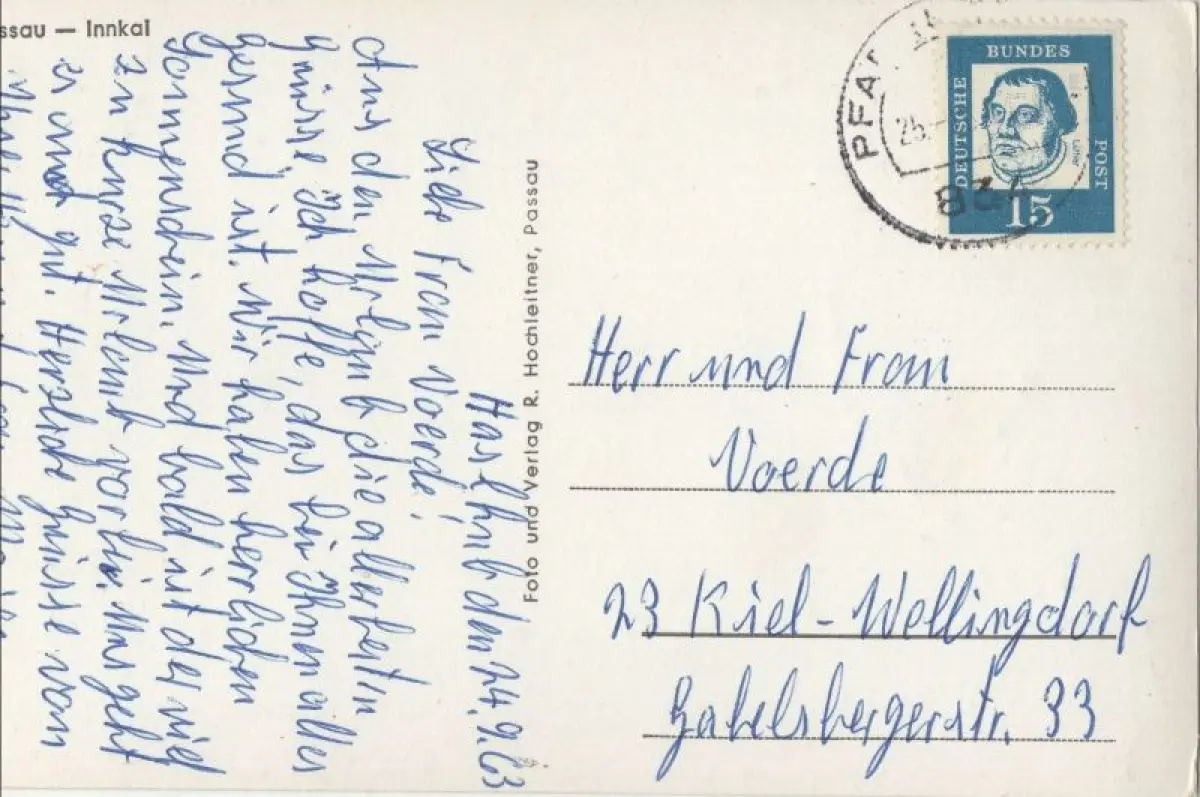 ssau — Innkai
Haselhub den 24.9.63
Liebe Frau Voerde!
Aus den Urlaub die allerbesten
grüsse. Ich hoffe, das bei Ihnen alles
gesund ist. Wir haben herrlichen
Sonnenschein. Und bald ist der viel
zu kurze Urlaub vorbei. Uns geht
es  gut. Herzliche grüsse von
Foto und Verlag R. Hochleitner, Passau
PFA
25.
834
DEUTSCHE
BUNDES
POST
Luther
15
Herr und Frau
Voerde
23 Kiel-Wellingdorf
Gabelsbergerstr. 33